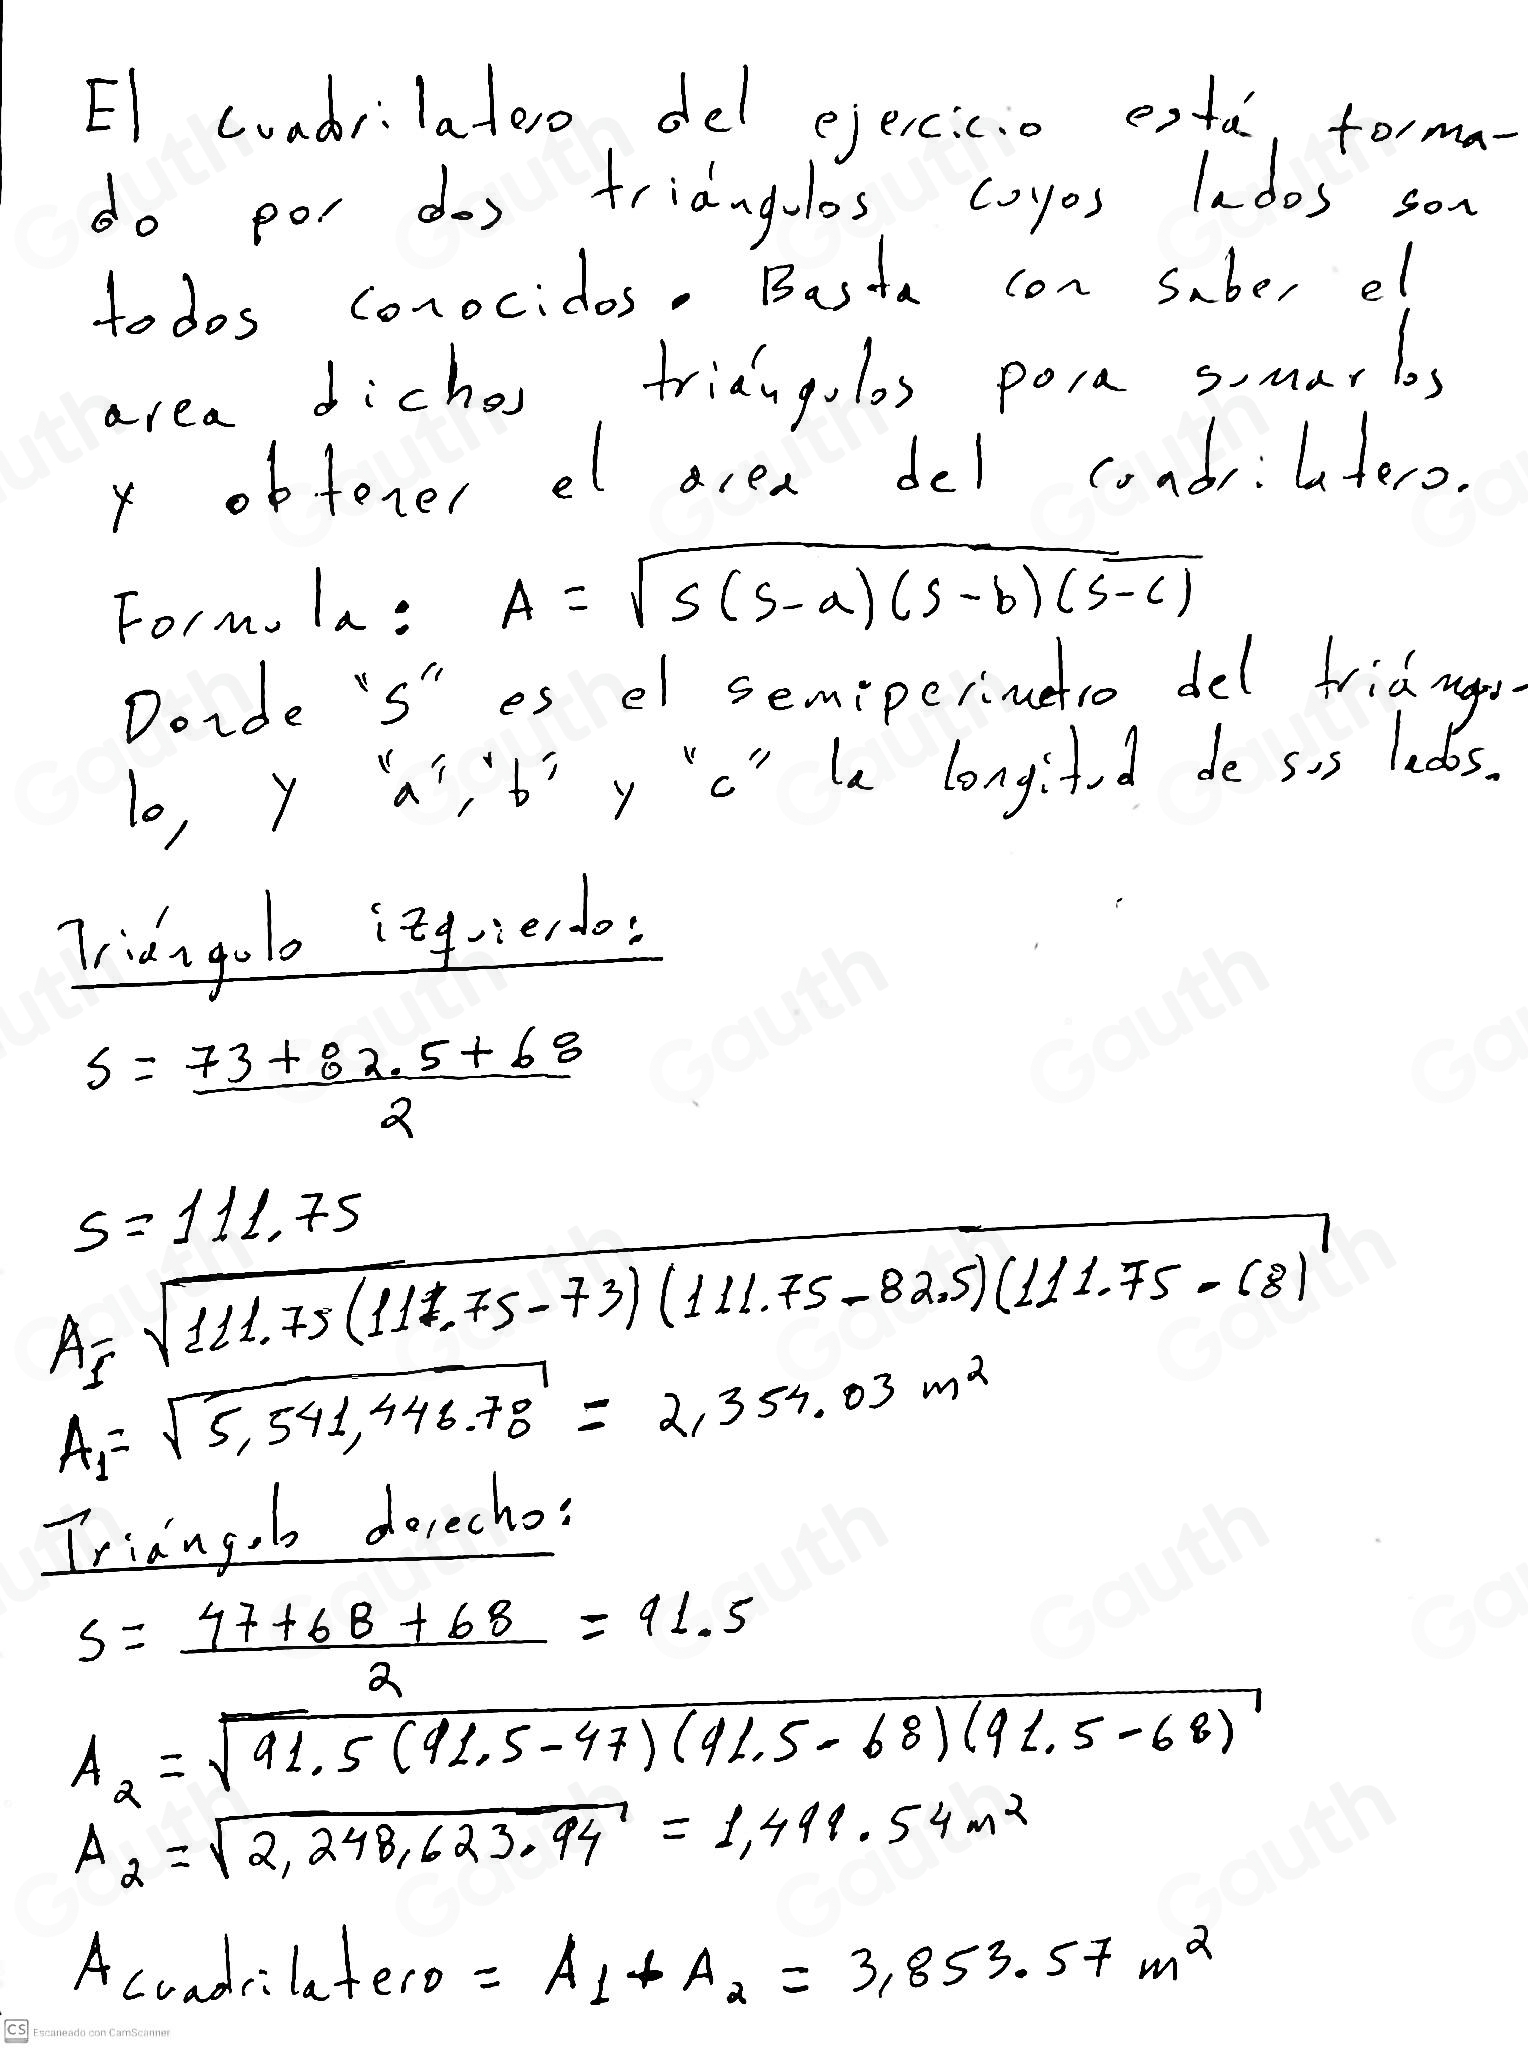 El cuadrilatero del ejercicio está forma-
do por dos triángulos cuyos lados son
todos conocidos. Basta con saber el
area dichos triángulos para sumarlos
y obtener el area del cuadrilatero.
Formula: A = √s(s-a)(s-b)(s-c)
Donde "s" es el semiperimetro del triángu-
lo, y "a", "b" y "c" la longitud de sus lados.
Triángulo izquierdo:
s = 73+82.5+68
2
s = 111.75
A₁= √111.75(111.75-73)(111.75-82.5)(111.75-68)
A₁= √5,541,448.78 = 2,354.03 m²
Triángulo derecho:
s = 47+68+68 = 91.5
2
A₂ = √91.5(91.5-47)(91.5-68)(91.5-68)
A₂ = √2,248,623.94 = 1,499.54 m²
A cuadrilatero = A₁ + A₂ = 3,853.57 m²
CS Escaneado con CamScanner
Gauth